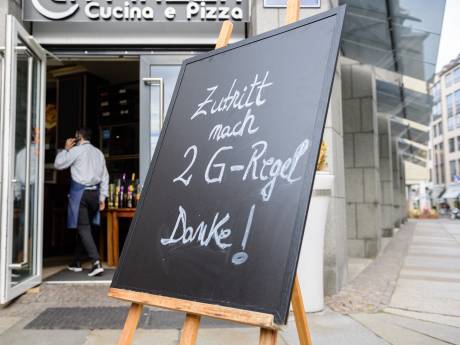 Cucina e Pizza
Zutritt
nach
2 G-Regel
Danke!